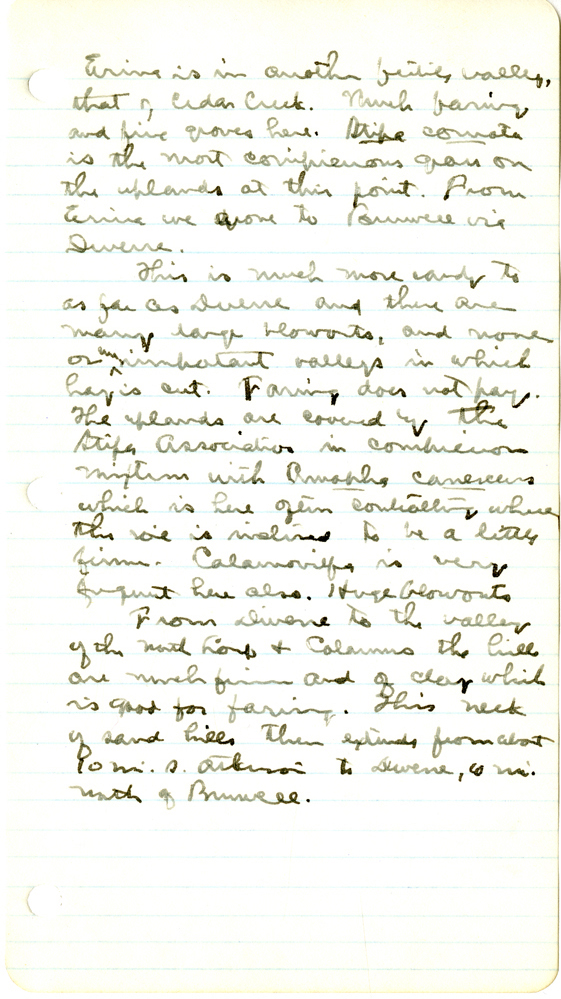 Erina is in another fertile valley,
that of Cedar Creek. Much faring
and fine groves here. Stipa comata
is the most conspicuous grass on
the uplands at this point. From
Erina we drove to Burwell via
Deverre.
This is much more sandy to
as far as Deverre and there are
many large blowouts, and none
or unimportant valleys in which
hay is cut. Faring does not pay.
The uplands are covered by the
Stipa Association in conspicuous
mixture with Amorpha canescens
which is here often controlling where
the soil is inclined to be a little
firm. Calamovilfa is very
frequent here also. Huge blowouts
From Deverre to the valley
of the North Loup & Calamus the hills
are much firmer and of clay which
is good for faring. This neck
of sand hills then extends from about
10 mi. s. Atkinson to Deverre, 10 mi.
north of Burwell.